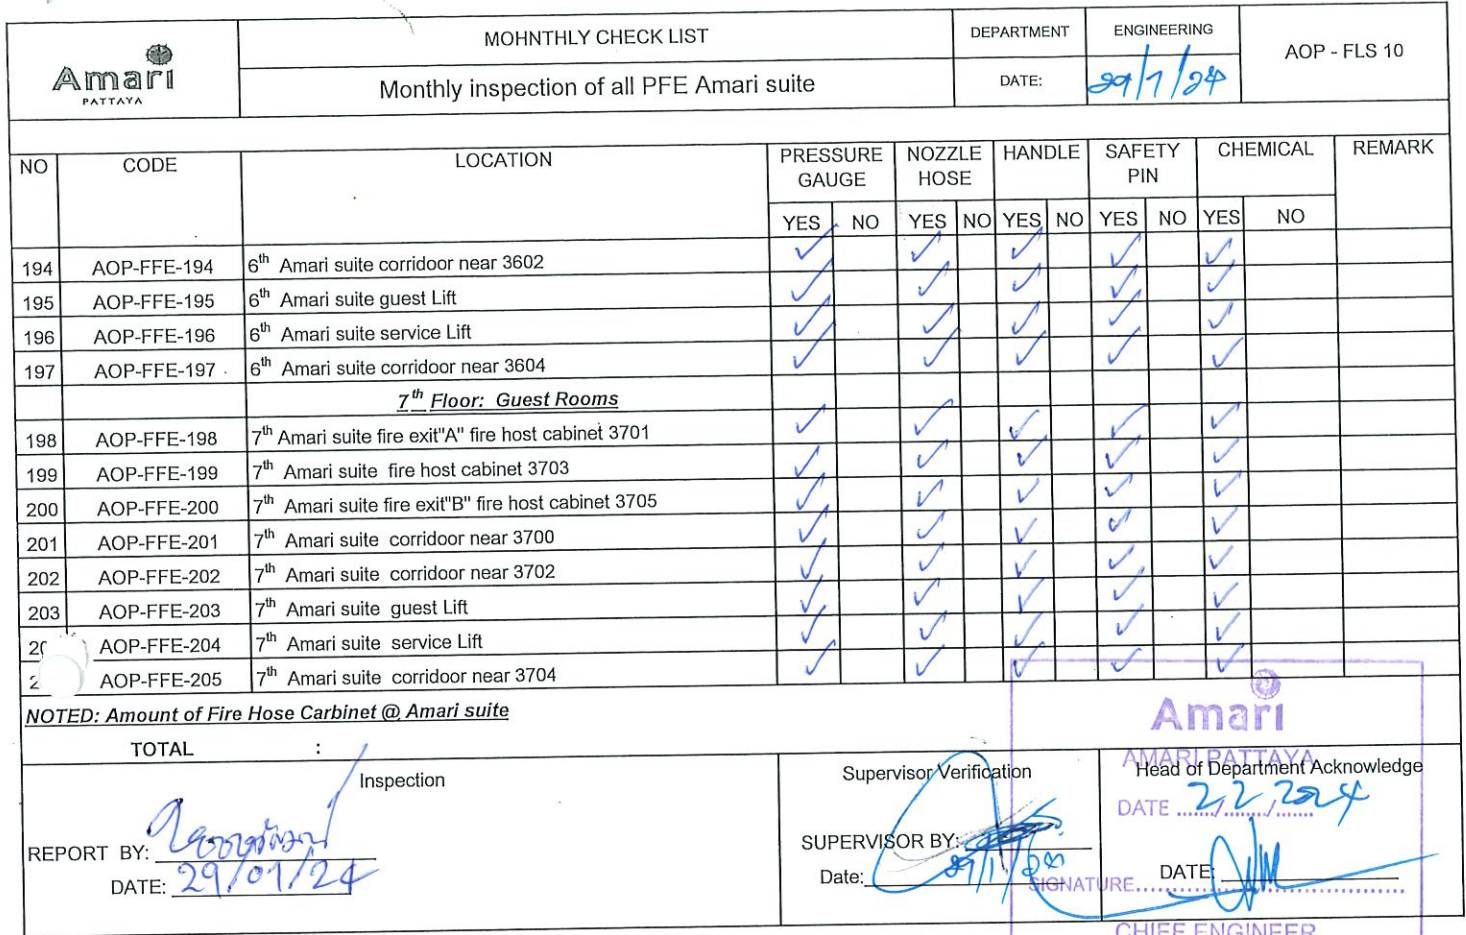 Amari
PATTAYA
MOHNTHLY CHECK LIST
Monthly inspection of all PFE Amari suite
DEPARTMENT
ENGINEERING
DATE:
29/1/24
AOP - FLS 10
NO CODE LOCATION PRESSURE GAUGE NOZZLE HOSE HANDLE SAFETY PIN CHEMICAL REMARK
YES NO YES NO YES NO YES NO YES NO
194 AOP-FFE-194 6th Amari suite corridoor near 3602 ✓ ✓ ✓ ✓ ✓
195 AOP-FFE-195 6th Amari suite guest Lift ✓ ✓ ✓ ✓ ✓
196 AOP-FFE-196 6th Amari suite service Lift ✓ ✓ ✓ ✓ ✓
197 AOP-FFE-197 6th Amari suite corridoor near 3604 ✓ ✓ ✓ ✓ ✓
7th Floor: Guest Rooms
198 AOP-FFE-198 7th Amari suite fire exit"A" fire host cabinet 3701 ✓ ✓ ✓ ✓ ✓
199 AOP-FFE-199 7th Amari suite fire host cabinet 3703 ✓ ✓ ✓ ✓ ✓
200 AOP-FFE-200 7th Amari suite fire exit"B" fire host cabinet 3705 ✓ ✓ ✓ ✓ ✓
201 AOP-FFE-201 7th Amari suite corridoor near 3700 ✓ ✓ ✓ ✓ ✓
202 AOP-FFE-202 7th Amari suite corridoor near 3702 ✓ ✓ ✓ ✓ ✓
203 AOP-FFE-203 7th Amari suite guest Lift ✓ ✓ ✓ ✓ ✓
20 AOP-FFE-204 7th Amari suite service Lift ✓ ✓ ✓ ✓ ✓
2 AOP-FFE-205 7th Amari suite corridoor near 3704 ✓ ✓ ✓ ✓ ✓
NOTED: Amount of Fire Hose Carbinet @ Amari suite
TOTAL :
Inspection
REPORT BY:
DATE: 29/01/24
Supervisor Verification
SUPERVISOR BY:
Date:
Amari
AMARI PATTAYA
Head of Department Acknowledge
DATE 2/2/2024
DATE:
SIGNATURE
CHIEF ENGINEER